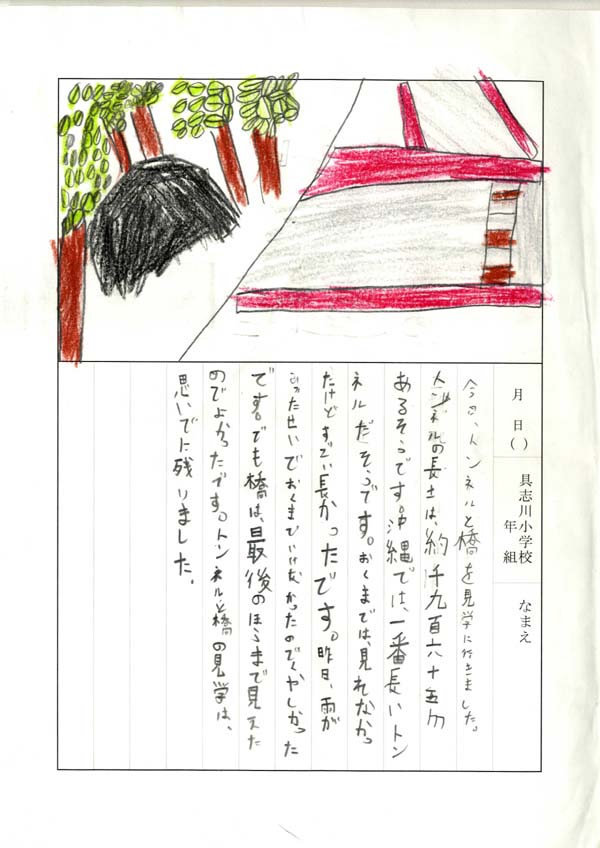 月　日（　）
具志川小学校
年　組
なまえ
今日、トンネルと橋を見学に行きました。
トンネルの長さは、約千九百六十五m
あるそうです。沖縄では、一番長いトン
ネルだそうです。おくまでは、見れなかっ
たけどすごい長かったです。昨日、雨が
ふったせいでおくまでいけなかったのでくやしかった
です。でも橋は、最後のほうまで見えた
のでよかったです。トンネルと橋の見学は、
思いでに残りました。